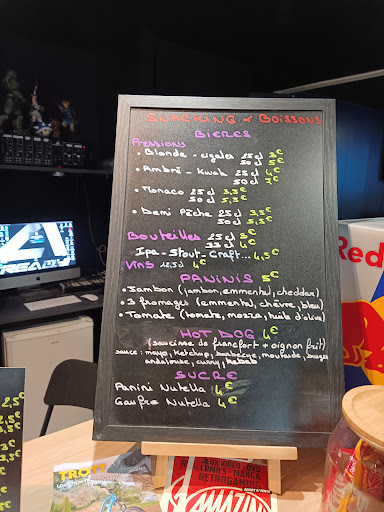 SNACKING & BOISSONS
BIERES
Pressions
• Blonde - cigales 25cl 3€
50cl 5€
• Ambré - Kwak 25cl 4€
50cl 7€
• Monaco 25cl 3,5€
50cl 5,5€
• Demi Pêche 25cl 3,5€
50cl 5,5€
Bouteilles 25cl 3€
33cl 4€
Ipa - Stout - Craft... 4,5€
Vins 12,5cl 4€
PANINIS 5€
• Jambon (jambon, emmental, cheddar)
• 3 fromages (emmental, chèvre, bleu)
• Tomate (tomate, mozza, huile d'olive)
HOT DOG 4€
(saucisse de francfort + oignon frit)
sauce: mayo, ketchup, barbecue, moutarde, burger
andalouse, curry, kebab
SUCRE
Panini Nutella 4€
Gaufre Nutella 4€
Red
TROTT
JEUX VIDEO • DVD
COMICS • MANGA
RETROGAMING